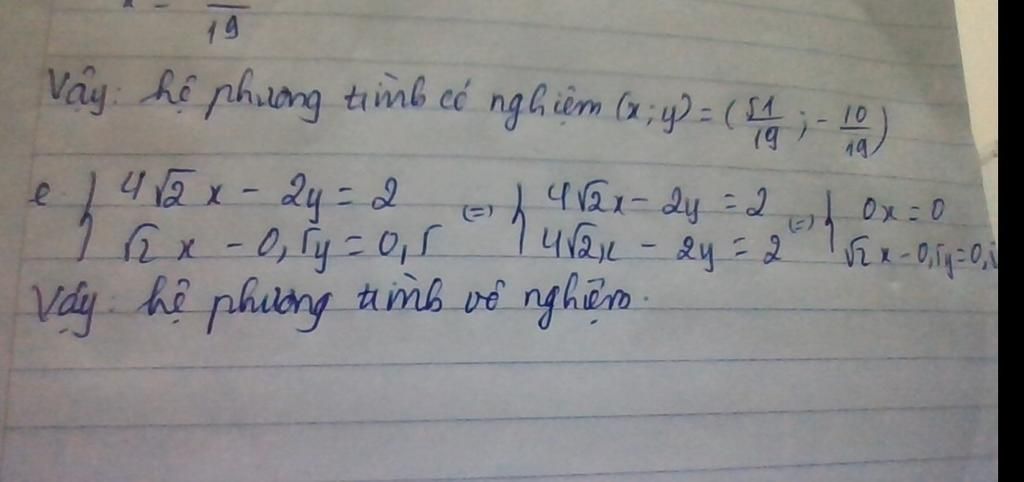 19
Vậy: hệ phương trình có nghiệm (x; y) = (51/19; -10/19)
e. { 4√2 x - 2y = 2 (=) { 4√2x - 2y = 2 (=) { 0x = 0
√2 x - 0,5y = 0,5 4√2x - 2y = 2 √2 x - 0,5y = 0,5
Vậy: hệ phương trình vô nghiệm.